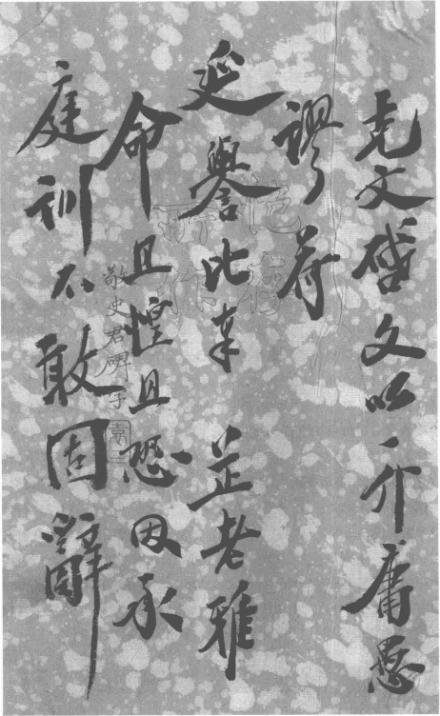 克文啓文以一介庸愚
謬荷
延譽比奉 芷老雅
命且惶且恐因承
庭訓不敢固辭
敬史君碑字